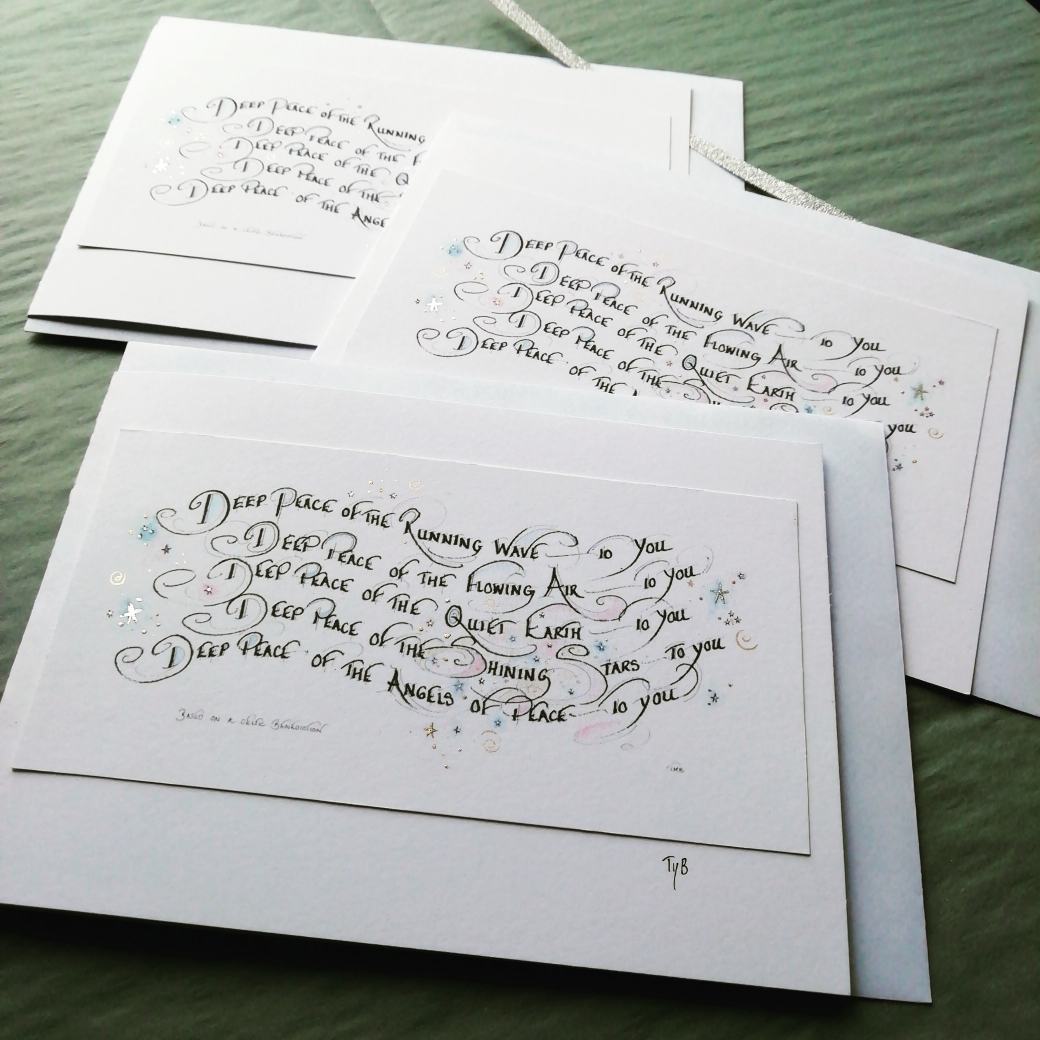 DEEP PEACE OF THE RUNNING
DEEP PEACE OF THE
DEEP PEACE OF THE
DEEP PEACE OF THE
DEEP PEACE OF THE
DEEP PEACE OF THE RUNNING WAVE TO YOU
DEEP PEACE OF THE FLOWING AIR TO YOU
DEEP PEACE OF THE QUIET EARTH TO YOU
DEEP PEACE OF THE YOU
DEEP PEACE OF THE
DEEP PEACE OF THE RUNNING WAVE TO YOU
DEEP PEACE OF THE FLOWING AIR TO YOU
DEEP PEACE OF THE QUIET EARTH TO YOU
DEEP PEACE OF THE SHINING STARS TO YOU
DEEP PEACE OF THE ANGELS OF PEACE TO YOU
BASED ON A CELTIC BENEDICTION
TyB